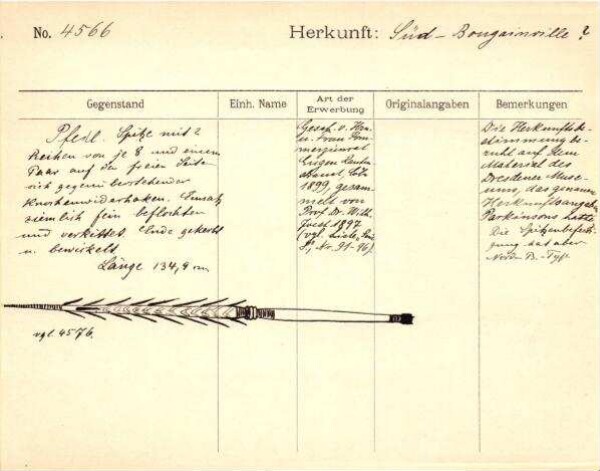 No. 4566
Herkunft: Süd-Bougainville ?
Gegenstand
Einh. Name
Art der Erwerbung
Originalangaben
Bemerkungen
Pfeil. Spitze mit 2
Reihen von je 8 und einem
Paar auf der freien Seite
sich gegenüberstehender
Knochenwiderhaken. Einsatz
ziemlich fein beflochten
und verkittet. Ende gekerbt
u. bewickelt
Länge 134,9 cm
Gesch. v. Hrn.
u. Frau Kom-
merzienrat
Eugen
1899, gesam-
melt von
Prof. Dr. Wilh.
Joest 1897
(vgl.
Nr. 91-96)
Die Herkunftsbe-
stimmung be-
ruht auf dem
Material des
Dresdener Muse-
ums, das genaue
Herkunftsangab.
Parkinsons hatte
Die Spitzenbefesti-
gung hat aber
Nord-B.-Typ
vgl. 4576.